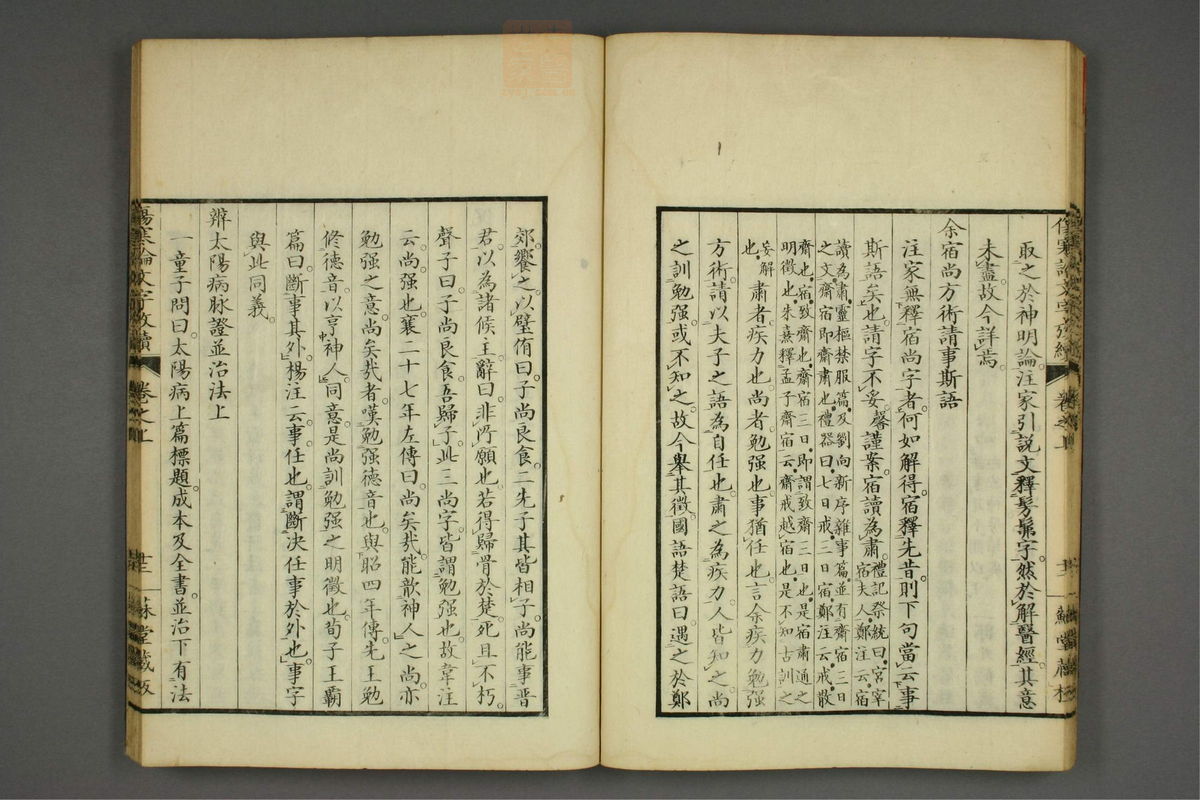 取之於神明論注家引説文釋髣髴字然於解醫經其意
未盡故今詳焉
余宿尚方術請事斯語
注家無釋宿尚字者何如解得宿釋先昔則下句當云事
斯語矣也請字不妥馨謹案宿讀為肅禮記祭統曰宮宰宿夫人鄭注云宿
讀為肅靈樞禁服篇及劉向新序雜事篇並有齋宿三日
之文齋宿即齋肅也禮器曰七日戒三日宿鄭注云戒散
齋也宿致齋也齋宿三日即謂致齋三日也是宿肅通之
明徵也朱熹釋孟子齋宿云齋戒越宿也是不知古訓之
妄解也肅者疾力也尚者勉强也事猶任也言余疾力勉强
方術請以夫子之語為自任也肅之為疾力人皆知之尚
之訓勉强或不知之故今舉其徵國語楚語曰遇之於鄭
郊饗之以璧侑曰子尚良食二先子其皆相子尚能事晋
君以為諸候主辭曰非所願也若得歸骨於楚死且不朽
聲子曰子尚良食吾歸子此三尚字皆謂勉强也故韋注
云尚强也襄二十七年左傳曰尚矣哉能歆神人之尚亦
勉强之意尚矣哉者嘆勉强德音也與昭四年傳先王勉
修德音以亨神人同意是尚訓勉强之明徵也荀子王霸
篇曰斷事其外楊注云事任也謂斷決任事於外也事字
與此同義
辨太陽病脉證並治法上
一童子問曰太陽病上篇標題成本及全書並治下有法
傷寒論文字攷續
卷之上